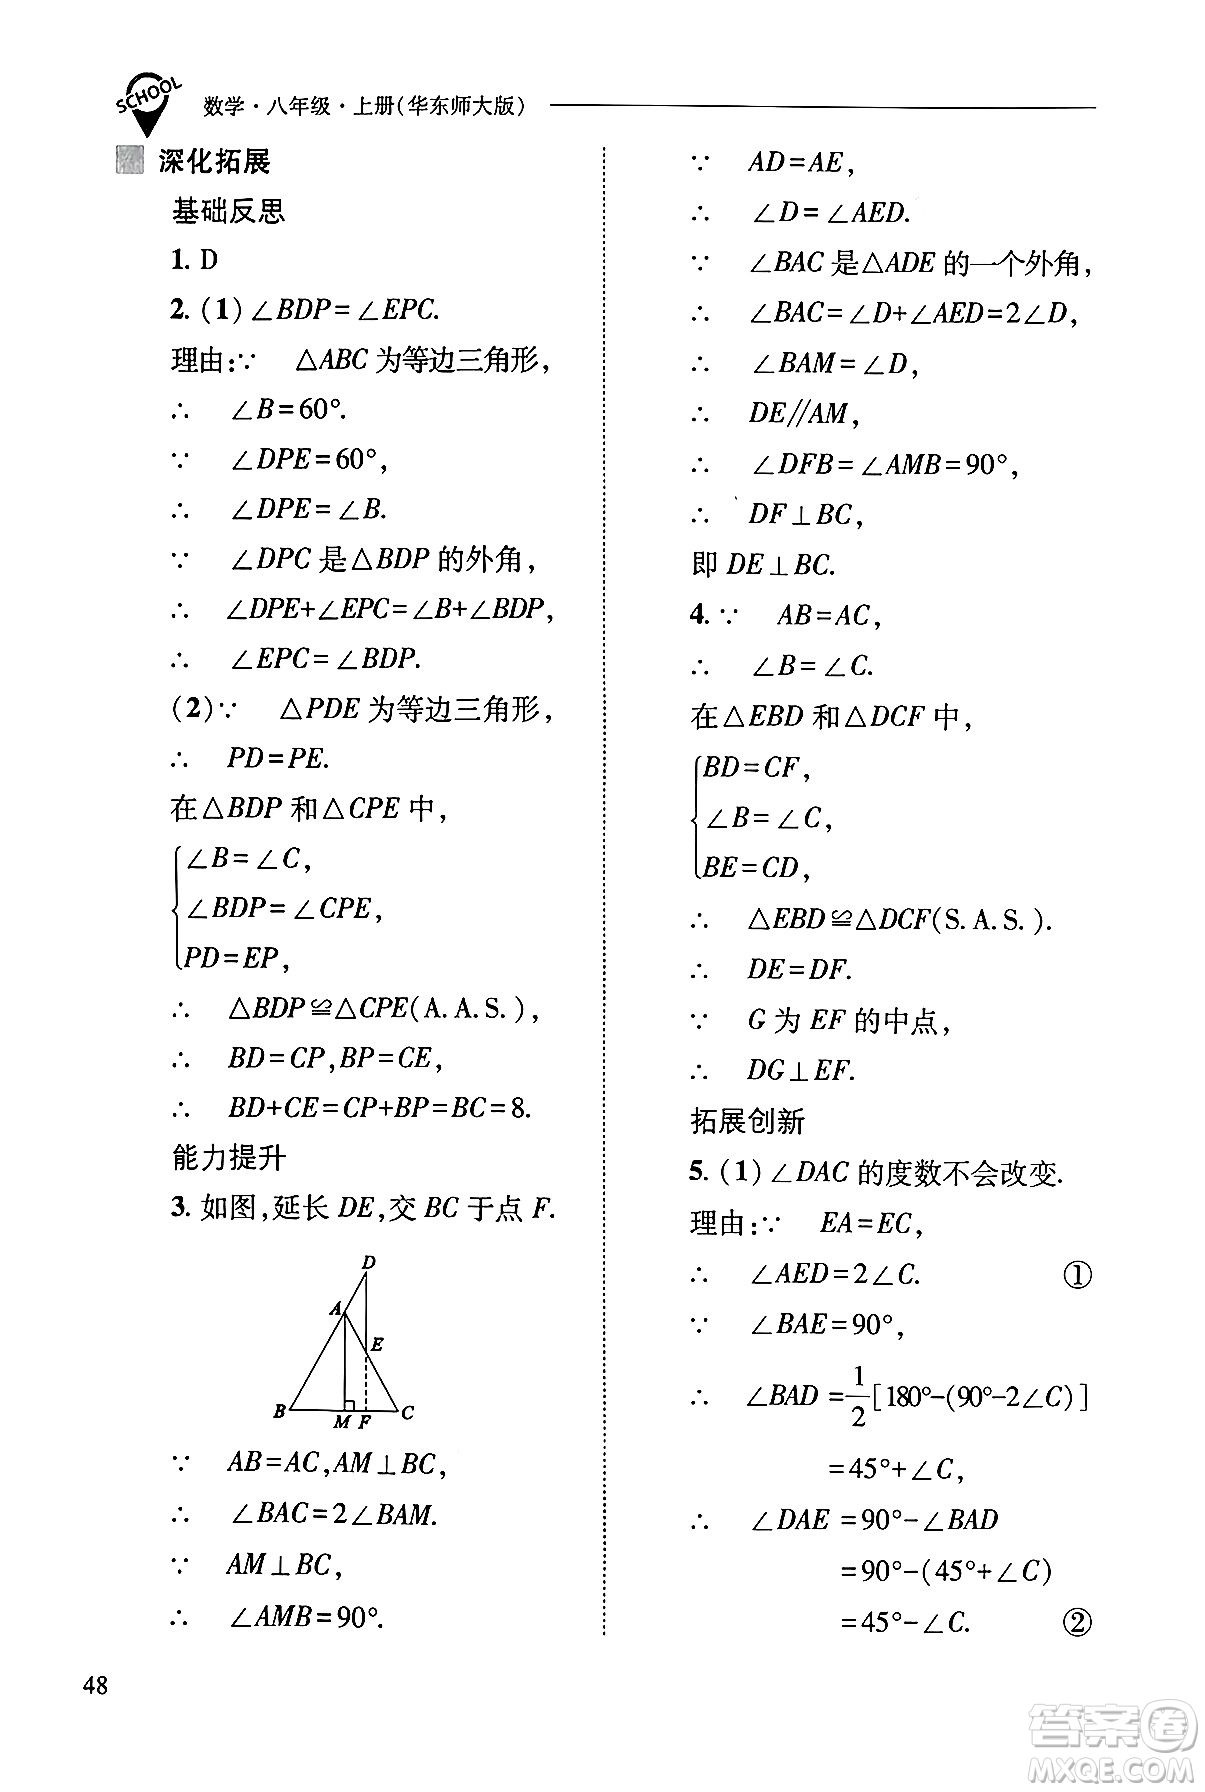 SCHOOL
数学·八年级·上册(华东师大版)
深化拓展
基础反思
1. D
2. (1)∠BDP=∠EPC.
理由:∵ △ABC为等边三角形,
∴ ∠B=60°.
∵ ∠DPE=60°,
∴ ∠DPE=∠B.
∵ ∠DPC是△BDP的外角,
∴ ∠DPE+∠EPC=∠B+∠BDP,
∴ ∠EPC=∠BDP.
(2)∵ △PDE为等边三角形,
∴ PD=PE.
在△BDP和△CPE中,
∠B=∠C,
∠BDP=∠CPE,
PD=EP,
∴ △BDP≌△CPE(A.A.S.),
∴ BD=CP,BP=CE,
∴ BD+CE=CP+BP=BC=8.
能力提升
3. 如图,延长DE,交BC于点F.
D
A
E
B M F C
∵ AB=AC,AM⊥BC,
∴ ∠BAC=2∠BAM.
∵ AM⊥BC,
∴ ∠AMB=90°.
∵ AD=AE,
∴ ∠D=∠AED.
∵ ∠BAC是△ADE的一个外角,
∴ ∠BAC=∠D+∠AED=2∠D,
∴ ∠BAM=∠D,
∴ DE∥AM,
∴ ∠DFB=∠AMB=90°,
∴ DF⊥BC,
即DE⊥BC.
4. ∵ AB=AC,
∴ ∠B=∠C.
在△EBD和△DCF中,
BD=CF,
∠B=∠C,
BE=CD,
∴ △EBD≌△DCF(S.A.S.).
∴ DE=DF.
∵ G为EF的中点,
∴ DG⊥EF.
拓展创新
5. (1)∠DAC的度数不会改变.
理由:∵ EA=EC,
∴ ∠AED=2∠C. ①
∵ ∠BAE=90°,
∴ ∠BAD=1/2[180°-(90°-2∠C)]
=45°+∠C,
∴ ∠DAE=90°-∠BAD
=90°-(45°+∠C)
=45°-∠C. ②
48
答案卷
MXQE.COM